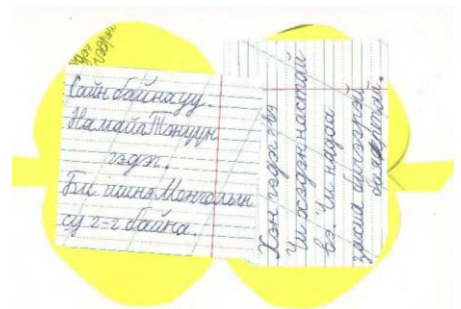 Сайн байна уу.
Намайг Тэнүүн
гэдэг.
Би шинэ Монголын
су 2-2 байна.
Хэн гэдэг вэ
Чи хэдэн настай
вэ. Чи надаа
захиа бичээрэй
баяртай.